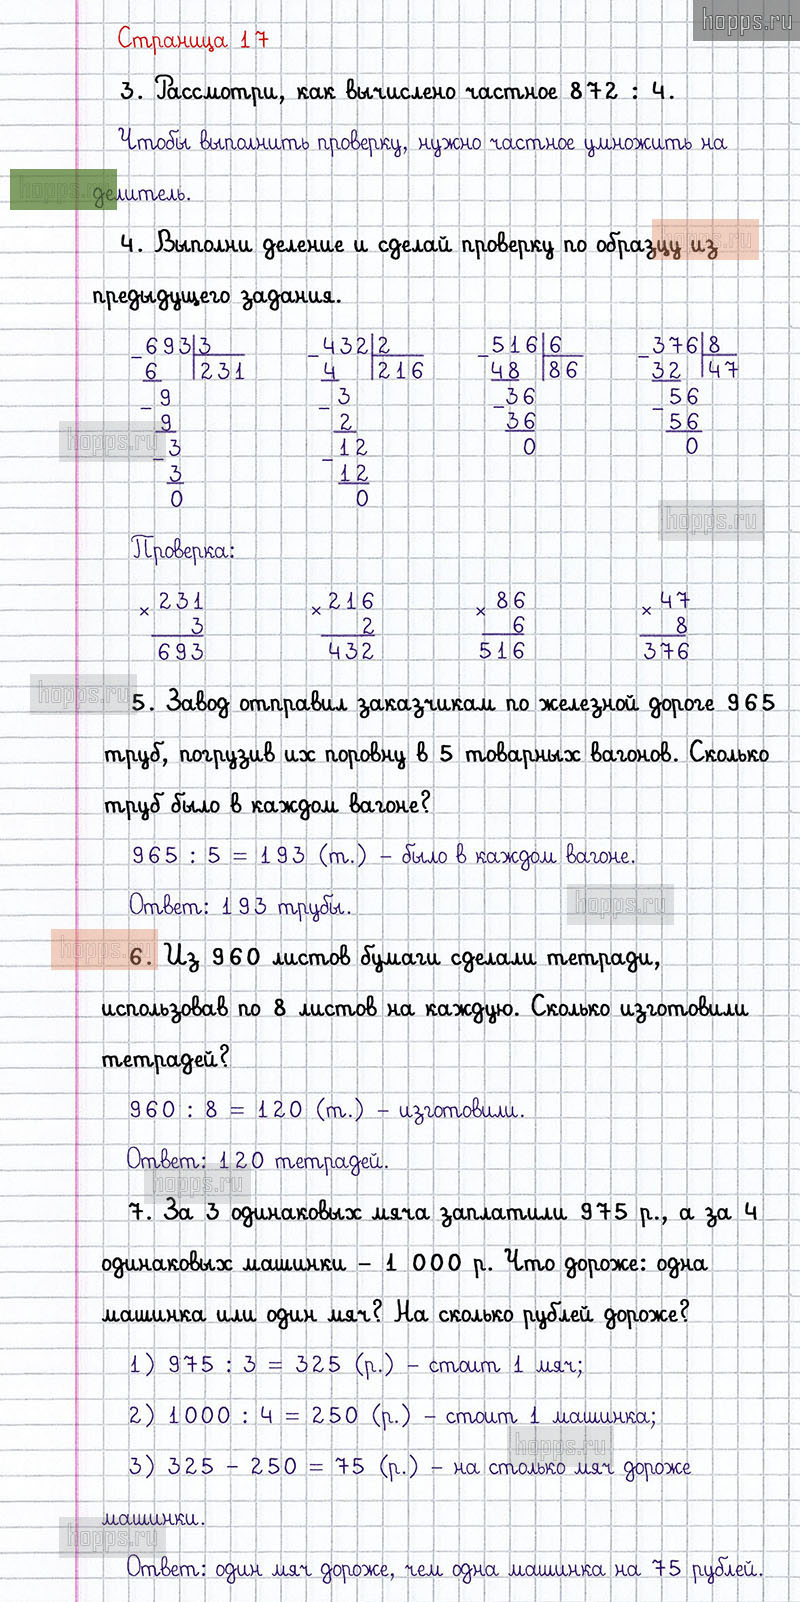 hopps.ru
Страница 17
3. Рассмотри, как вычислено частное 872 : 4.
Чтобы выполнить проверку, нужно частное умножить на
hopps.ru
делитель.
4. Выполни деление и сделай проверку по образцу из
hopps.ru
предыдущего задания.
− 693 | 3 − 432 | 2 − 516 | 6 − 376 | 8
6 | 231 4 | 216 48 | 86 32 | 47
− 9 − 3 − 36 − 56
9 2 36 56
hopps.ru
− 3 − 12 0 0
3 12
0 0
hopps.ru
Проверка:
× 231 × 216 × 86 × 47
3 2 6 8
693 432 516 376
hopps.ru
5. Завод отправил заказчикам по железной дороге 965
труб, погрузив их поровну в 5 товарных вагонов. Сколько
труб было в каждом вагоне?
965 : 5 = 193 (т.) – было в каждом вагоне.
Ответ: 193 трубы.
hopps.ru
hopps.ru
6. Из 960 листов бумаги сделали тетради,
использовав по 8 листов на каждую. Сколько изготовили
тетрадей?
960 : 8 = 120 (т.) – изготовили.
Ответ: 120 тетрадей.
hopps.ru
7. За 3 одинаковых мяча заплатили 975 р., а за 4
одинаковых машинки – 1 000 р. Что дороже: одна
машинка или один мяч? На сколько рублей дороже?
1) 975 : 3 = 325 (р.) – стоит 1 мяч;
2) 1000 : 4 = 250 (р.) – стоит 1 машинка;
hopps.ru
3) 325 – 250 = 75 (р.) – на столько мяч дороже
машинки.
hopps.ru
Ответ: один мяч дороже, чем одна машинка на 75 рублей.